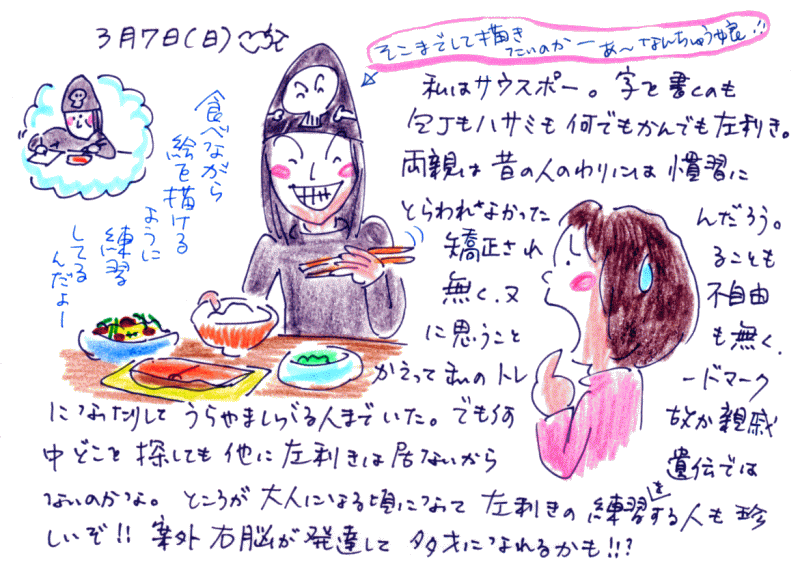 3月7日(日)
そこまでして描き
たいのかー あ〜なんちゅう娘!!
食べながら
絵を描ける
ように
練習
してる
んだよー
私はサウスポー。字を書くのも
包丁もハサミも何でもかんでも左利き。
両親は昔の人のわりには慣習に
とらわれなかった んだろう。
矯正され ることも
無く、又 不自由
に思うこと も無く、
かえって私のトレ ードマーク
になったりしてうらやましがる人までいた。でも何故か親戚
中どこを探しても他に左利きは居ないから 遺伝では
ないのかな。ところが大人になる頃になって左利きの練習をする人も珍
しいぞ!!案外右脳が発達して多才になれるかも!!?